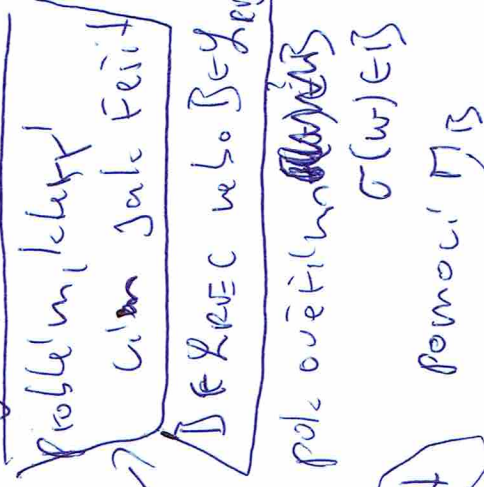 Problém, který
vím jak řešit
B ∈ L_REC nebo B ∈ L_REC
pak ověřím
σ(w) ∈ B
pomocí M_B